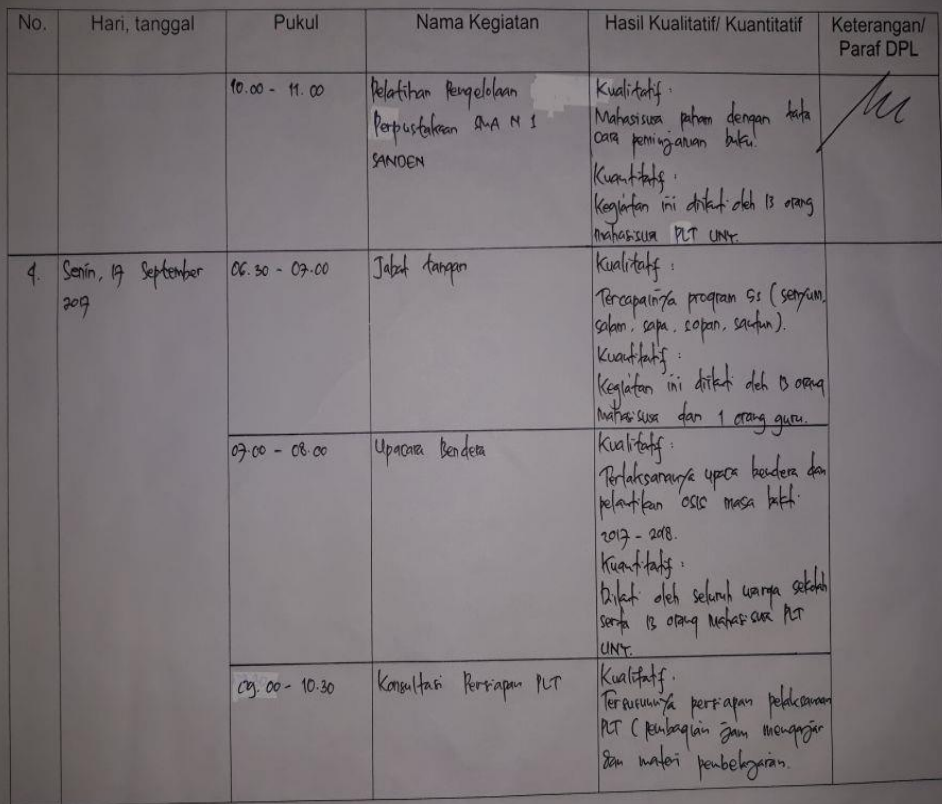 No. Hari, tanggal Pukul Nama Kegiatan Hasil Kualitatif/ Kuantitatif Keterangan/
Paraf DPL
10.00 - 11.00 Pelatihan Pengelolaan
Perpustakaan SMA N 1
SANDEN
Kualitatif :
Mahasiswa paham dengan tata
cara peminjaman buku.
Kuantitatif :
Kegiatan ini diikuti oleh 13 orang
Mahasiswa PLT UNY.
4. Senin, September
2017
06.30 - 07.00 Jabat tangan
Kualitatif :
Tercapainya program 5s (senyum,
salam, sapa, sopan, santun).
Kuantitatif :
Kegiatan ini diikuti oleh 13 orang
Mahasiswa dan 1 orang guru.
07.00 - 08.00 Upacara Bendera
Kualitatif :
Terlaksananya upaca bendera dan
pelantikan OSIS masa bakti
2017 - 2018.
Kuantitatif :
Diikuti oleh seluruh warga sekolah
serta 13 orang Mahasiswa PLT
UNY.
09.00 - 10.30 Konsultasi Persiapan PLT
Kualitatif.
Tersusunnya persiapan pelaksanaan
PLT (pembagian jam mengajar
dan materi pembelajaran.